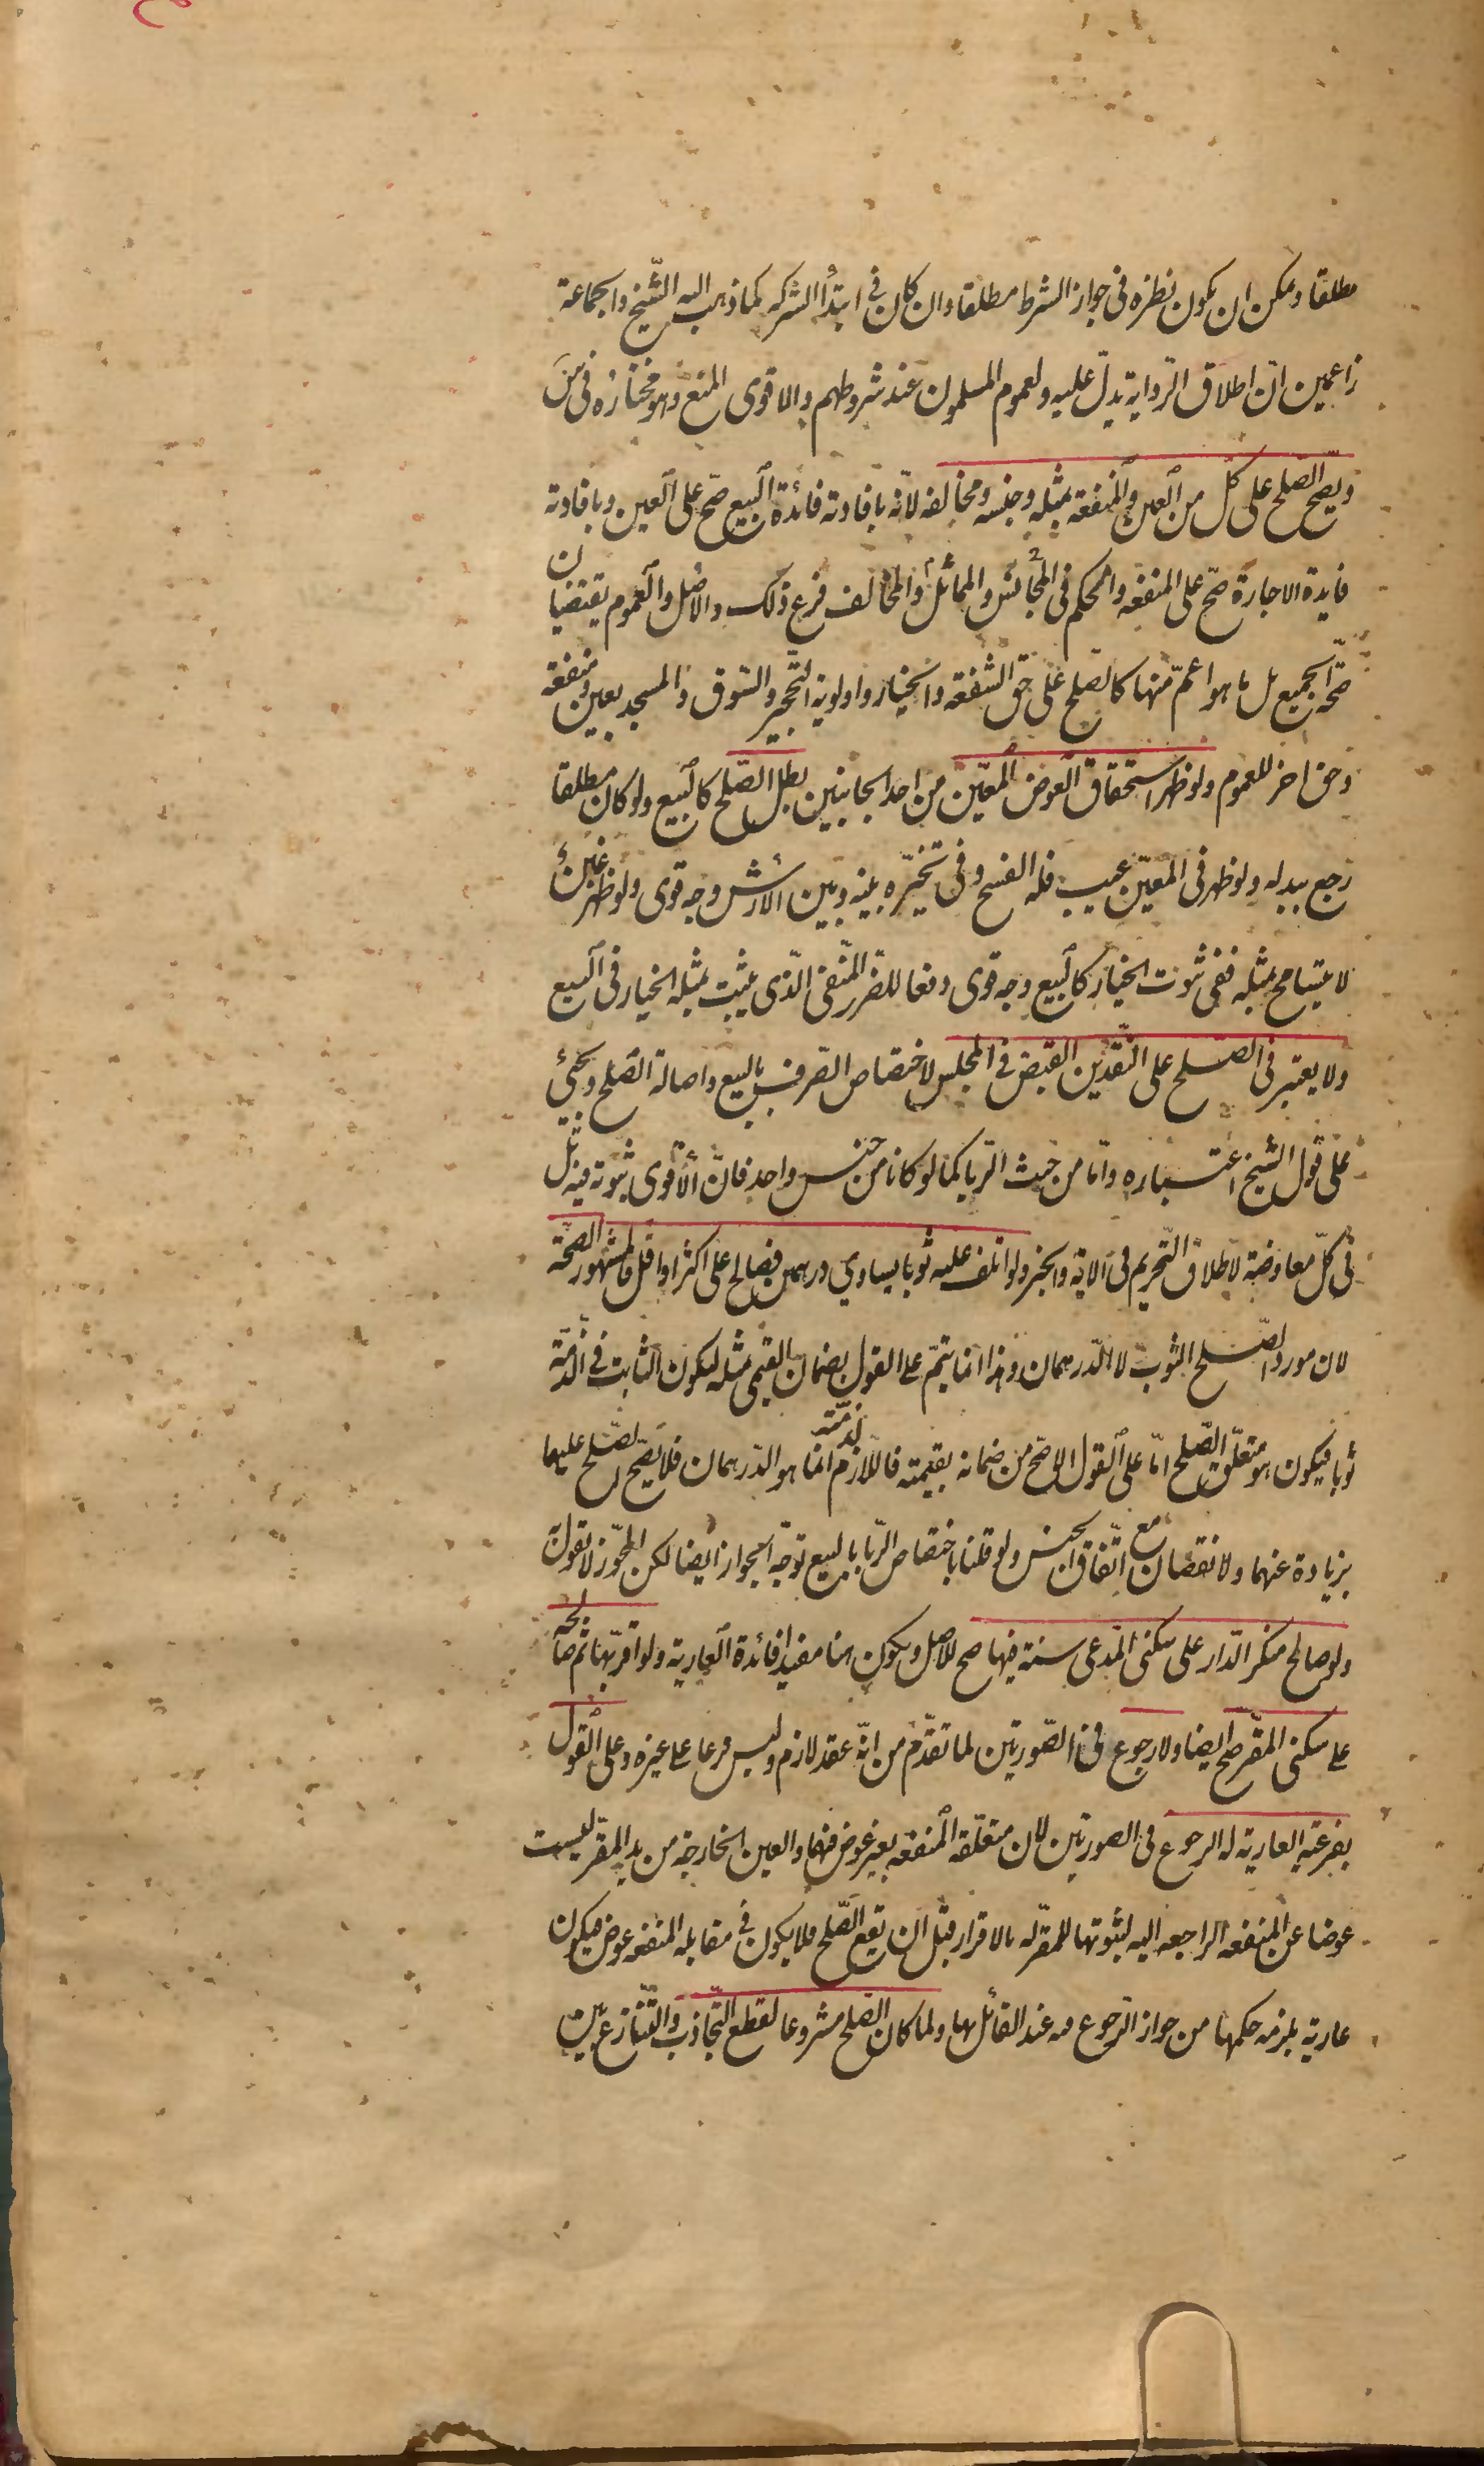 مطلقا ويمكن ان يكون نظره فى جواز الشرط مطلقا وان كان فى ابتدأ الشركه كما ذهب اليه الشّيخ واجماعة
زاعمين انّ اطلاق الرّواية يدلّ عليه ولعموم المسلمون عند شروطهم والاقوى المنع وهو مختاره فى س
ويصحّ الصّلح على كلّ من العين والمنفعة بمثله وجنسه ومخالفه لانّه بافادته فائدة البيع صحّ على العين وبافادته
فايدة الاجارة صحّ على المنفعه والحكم فى المجانس والمماثل والمخالف فرع ذلك والاصل والعموم يقتضيان
صحّة الجميع بل ما هو اعمّ منها كالصّلح على حقّ الشفعة والخيار واولوية التّحجير والسّوق والمسجد بعين ومنفعة
وحق اخر للعموم ولو ظهر استحقاق العوض المعيّن من احد الجانبين بطل الصّلح كالبيع ولو كان مطلقا
رجع ببدله ولو ظهر فى المعيّن عيب فله الفسخ وفى تخيّره بينه وبين الارش وجه قوى ولو ظهر غبن
لا يتسامح بمثله ففى ثبوت الخيار كالبيع وجه قوى دفعا للضّرر المنفى الّذى يثبت بمثله الخيار فى البيع
ولا يعتبر فى الصّلح على النّقدين القبض فى المجلس لاختصاص الصّرف بالبيع واصالة الصّلح ويجئ
على قول الشيخ اعتباره وامّا من حيث الرّبا كما لو كانا من جنس واحد فانّ الاقوى ثبوته فيه بل
فى كلّ معاوضة لاطلاق التّحريم فى الاية والخبر ولو اتلف عليه ثوبا يساوي درهمين فصالح على اكثر او اقل فالمشهور الصّحّة
لان مورد الصّلح الثوب لا الدّرهمان وهذا انما يتمّ على القول بضمان القيمى بمثله ليكون الثابت فى الذّمّة
ثوبا فيكون هو متعلّق الصّلح امّا على القول الاصّح من ضمانه بقيمته فاللّازم لذمّته انما هو الدّرهمان فلا يصّح الصّلح عليهما
بزيادة عنهما ولا نقصان مع اتّفاق الجنس ولو قلنا باختصاص الرّبا بالبيع توجّه الجواز ايضا لكن المجّوز لا يقول به
ولو صالح منكر الدّار على سكنى المّدعى سنة فيها صح للاصل ويكون هنا مفيدا فائدة العارية ولو اقر بها ثم صالحه
على سكنى المقرّ صحّ ايضا ولا رجوع فى الصّورتين لما تقدّم من انّه عقد لازم وليس فرعا على غيره وعلى القول
بفرعيّة العارية له الرجوع فى الصورتين لان متعلّقه المنفعه بغير عوض فيهما والعين الخارجة من يد المقرّ ليست
عوضا عن المنفعه الراجعه اليه لثبوتها للمقرّ له بالاقرار قبل ان يقع الصّلح فلا يكون فى مقابله المنفعه عوض فيكون
عارية يلزمه حكمها من جواز الرّجوع فيه عند القائل بها ولما كان الصّلح مشروعا لقطع التّجاذب والتّنازع بين